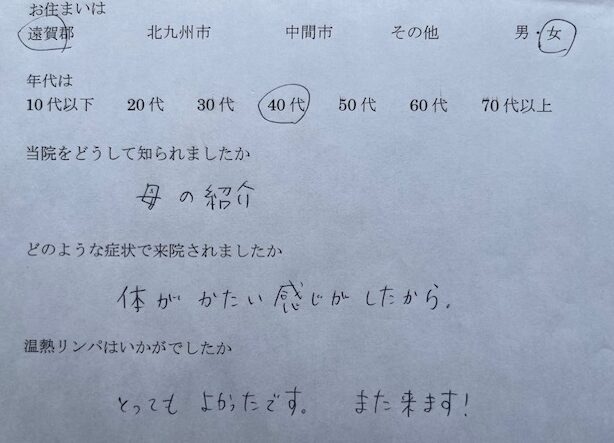 お住まいは
遠賀郡 北九州市 中間市 その他 男・女
年代は
10代以下 20代 30代 40代 50代 60代 70代以上
当院をどうして知られましたか
母の紹介
どのような症状で来院されましたか
体がかたい感じがしたから。
温熱リンパはいかがでしたか
とってもよかったです。 また来ます!